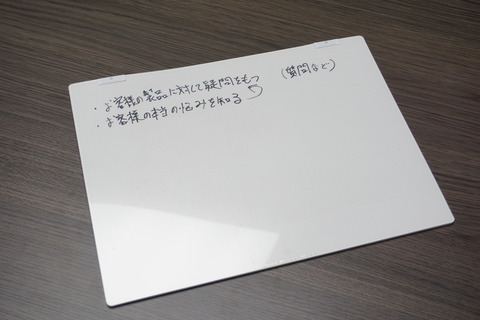 ・お客様の製品に対して疑問をもつ (質問など)
・お客様の本当の悩みを知る